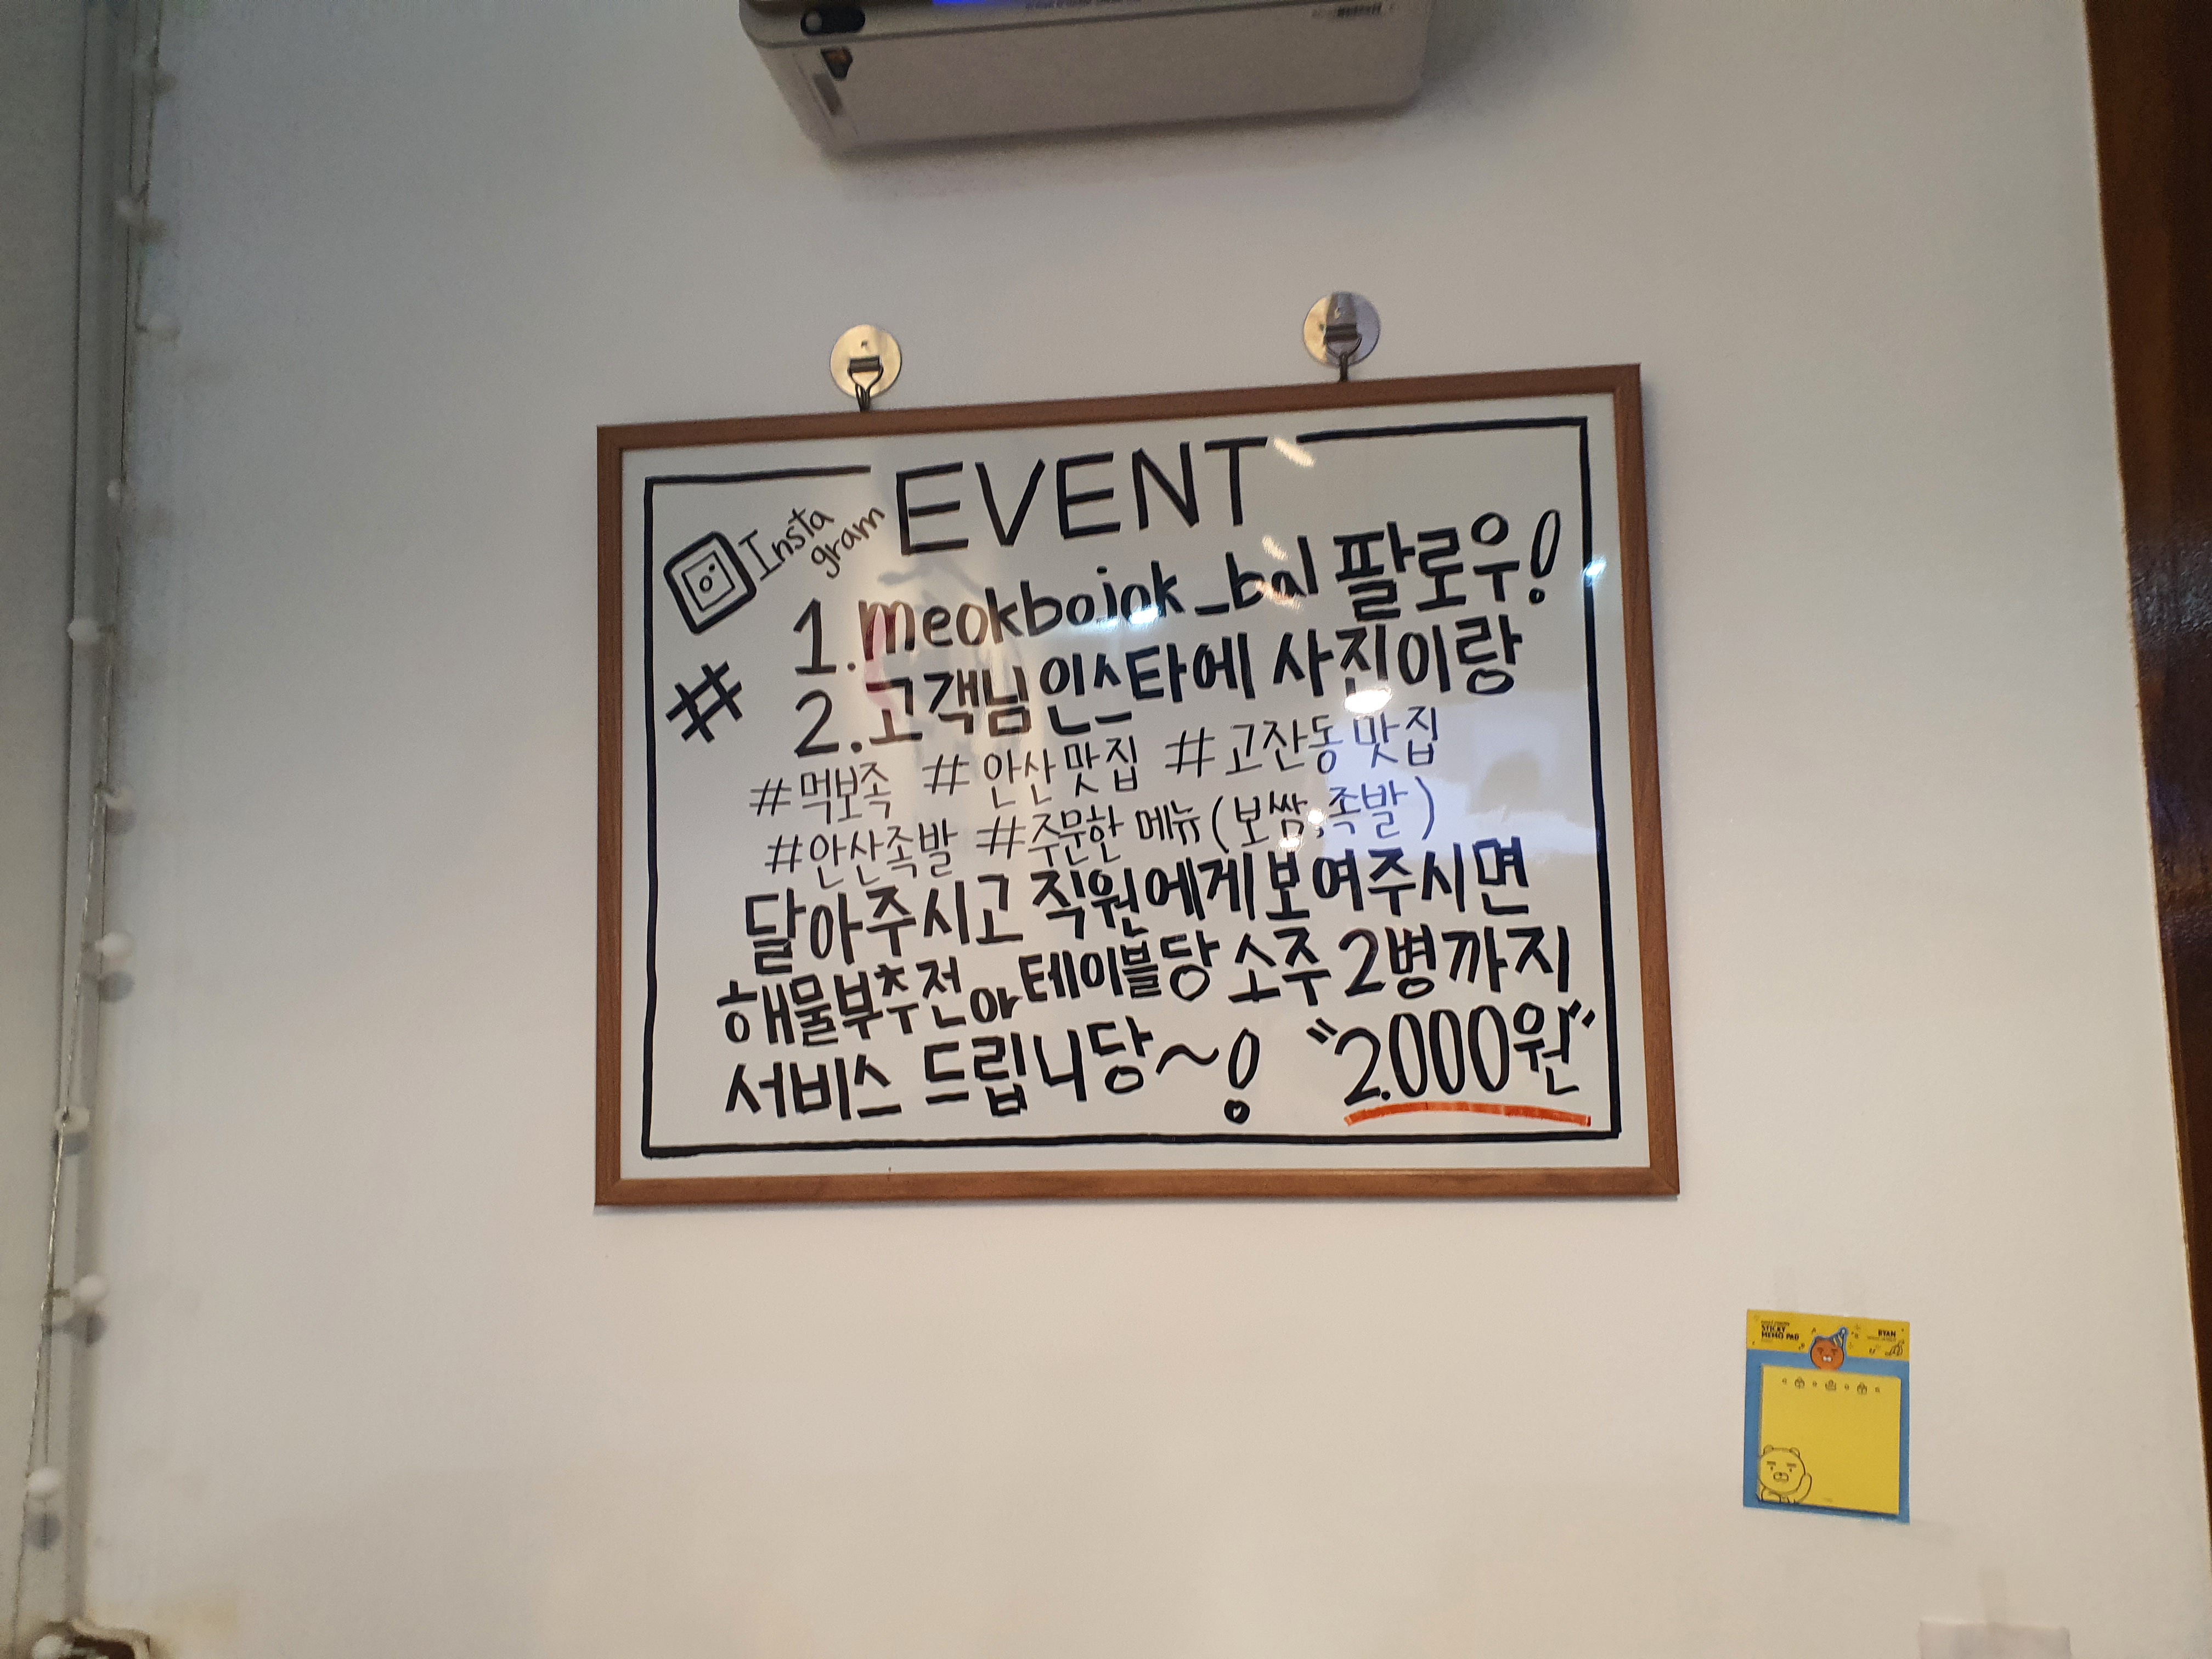 EVENT
Insta
gram
1. meokbojok_bal 팔로우!
# 2. 고객님 인스타에 사진이랑
#먹보족 #안산맛집 #고잔동맛집
#안산족발 #주문한 메뉴(보쌈,족발)
달아주시고 직원에게 보여주시면
해물부추전 or 테이블당 소주 2병까지
서비스 드립니당~! "2.000원"
STICKY
MEMO PAD
RYAN